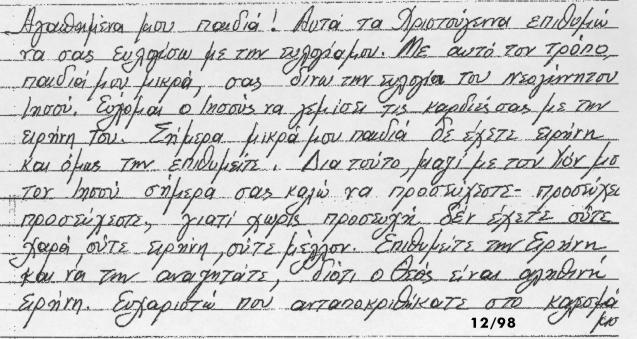 Αγαπημένα μου παιδιά! Αυτά τα Χριστούγεννα επιθυμώ
να σας ευλογίσω με την ευλογία μου. Με αυτό τον τρόπο,
παιδιά μου μικρά, σας δίνω την ευλογία του νεογέννητου
Ιησού. Εύχομαι ο Ιησούς να γεμίσει τις καρδιές σας με την
ειρήνη του. Σήμερα μικρά μου παιδιά δε έχετε ειρήνη
και όμως την επιθυμείτε. Δια τούτο, μαζί με τον Υιόν μο
τον Ιησού σήμερα σας καλώ να προσεύχεστε- προσεύχε
προσεύχεστε, γιατί χωρίς προσευχή δεν έχετε ούτε
χαρά, ούτε ειρήνη, ούτε μέλλον. Επιθυμείτε την Ειρήνη
και να την αναζητάτε, διότι ο Θεός είναι αληθινή
ειρήνη. Ευχαριστώ που ανταποκριθήκατε στο κάλεσμά
μο
12/98